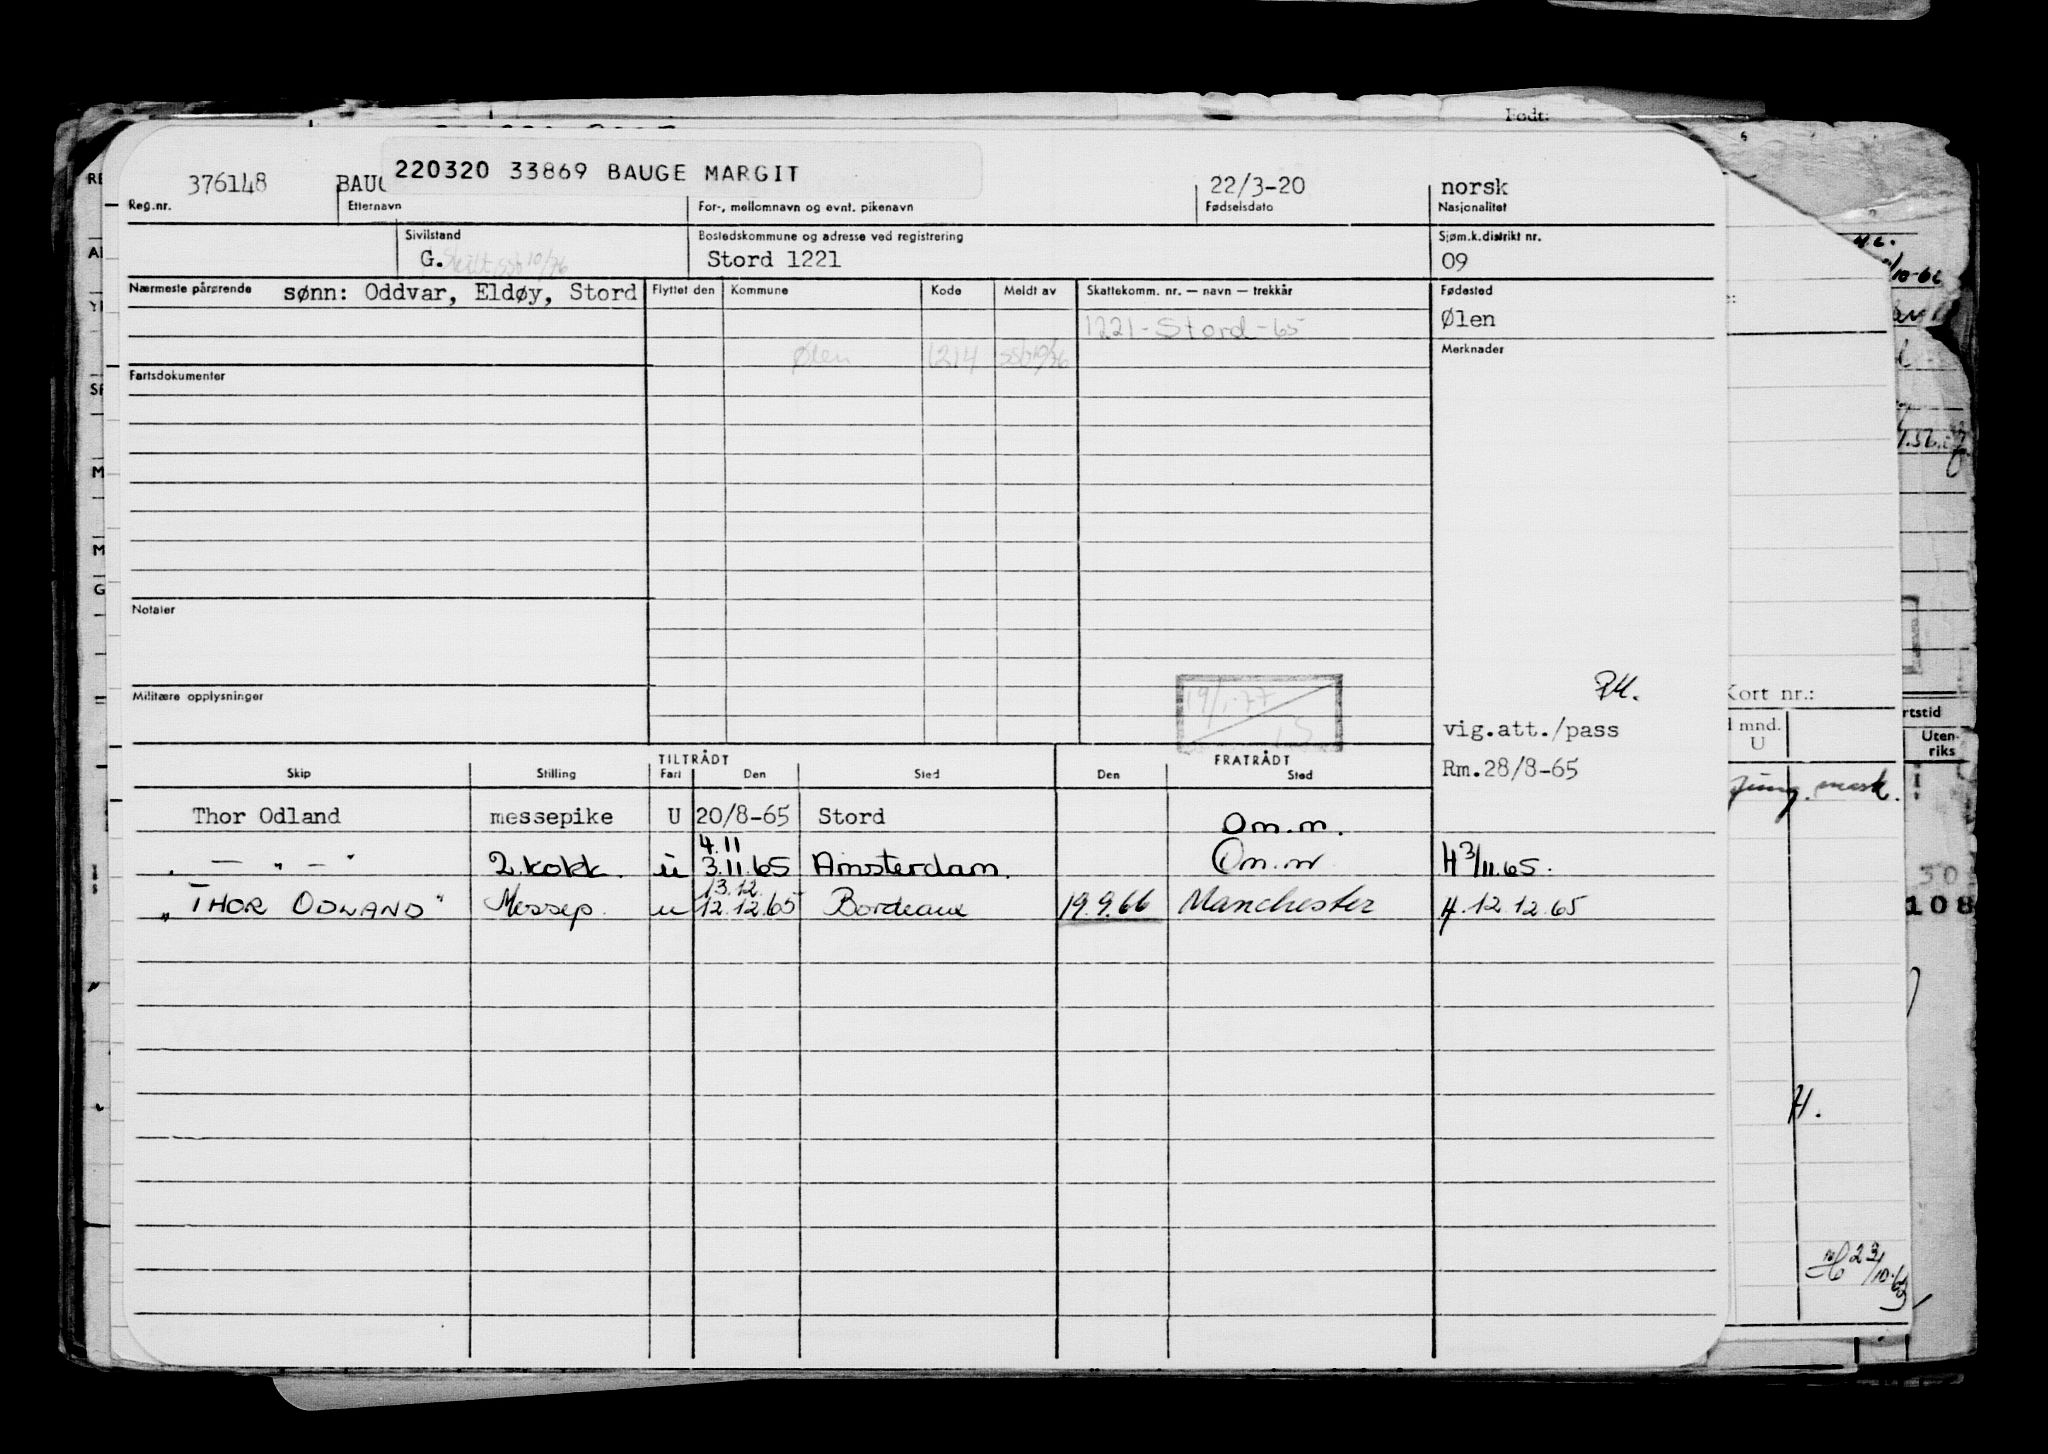 Født:
220320 33869 BAUGE MARGIT
376148 BAUG 22/3-20 norsk
Reg.nr. Etternavn For-, mellomnavn og evnt. pikenavn Fødselsdato Nasjonalitet
Sivilstand Bostedskommune og adresse ved registrering Sjøm.k.distrikt nr.
G. Skilt, ssb 10/76 Stord 1221 09
Nærmeste pårørende sønn: Oddvar, Eldøy, Stord Flyttet den Kommune Kode Meldt av Skattekomm. nr. — navn — trekkår Fødested
1221-Stord-65 Ølen
Ølen 1214 ssb 10/76 Merknader
Fartsdokumenter
Notater
Militære opplysninger
19/1-77
vig.att./pass
Rm.28/8-65
TILTRÅDT FRATRÅDT
Skip Stilling Fart Den Sted Den Sted
Thor Odland messepike U 20/8-65 Stord Om.m.
4.11
— " — " 2.kokk. u 3.11.65 Amsterdam. Om.m H 3/11.65.
13.12.
"THOR ODLAND" Messep. u 12.12.65 Bordeaux 19.9.66 Manchester H.12.12.65
Kort nr.:
mnd.
U
rtstid
Uten-
riks
mask.
108
H.
23/10-63